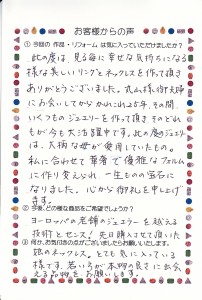 お客様からの声
① 今回の 作品・リフォーム は気に入っていただけましたか？
此の度は、見る毎に幸せな気持ちになる
様な美しいリングとネックレスを作って頂き
ありがとうございました。丸山様御夫妻
にお会いしてからかれこれ25年。その間、
いくつものジュエリーを作って頂きそのどれ
もが今も大活躍中です。此の度のジュエリー
は、大柄な母が愛用していたもの。
私に合わせて華奢で優雅なフォルム
に作り変えられ、一生ものの宝石に
なりました。心から御礼を申し上げ
ます。
② 今後、どの様な商品をご希望でしょうか？
ヨーロッパの老舗のジュエラーを越える
技術とセンス！先日購入させて頂いた
③ 何か、お気付きの点がございましたらお願いいたします。
銀のネックレス。とても気に入っている
様です。若いうちが本物の良さに出会
える品物をお願いします。